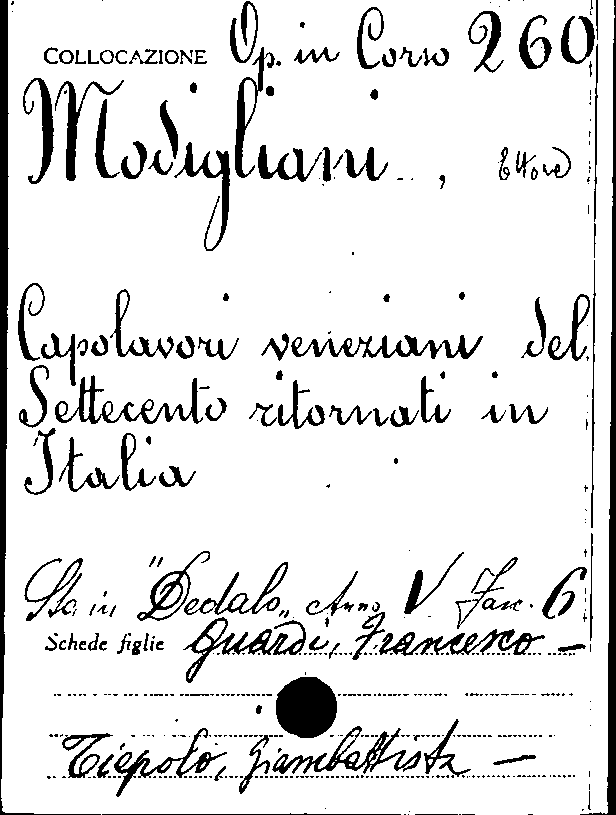 COLLOCAZIONE Op. in Corso 260
Modigliani , Ettore
Capolavori veneziani del
Settecento ritornati in
Italia
Sta in "Dedalo„ Anno V Fasc. 6
Schede figlie Guardi, Francesco —
Tiepolo, Giambattista —